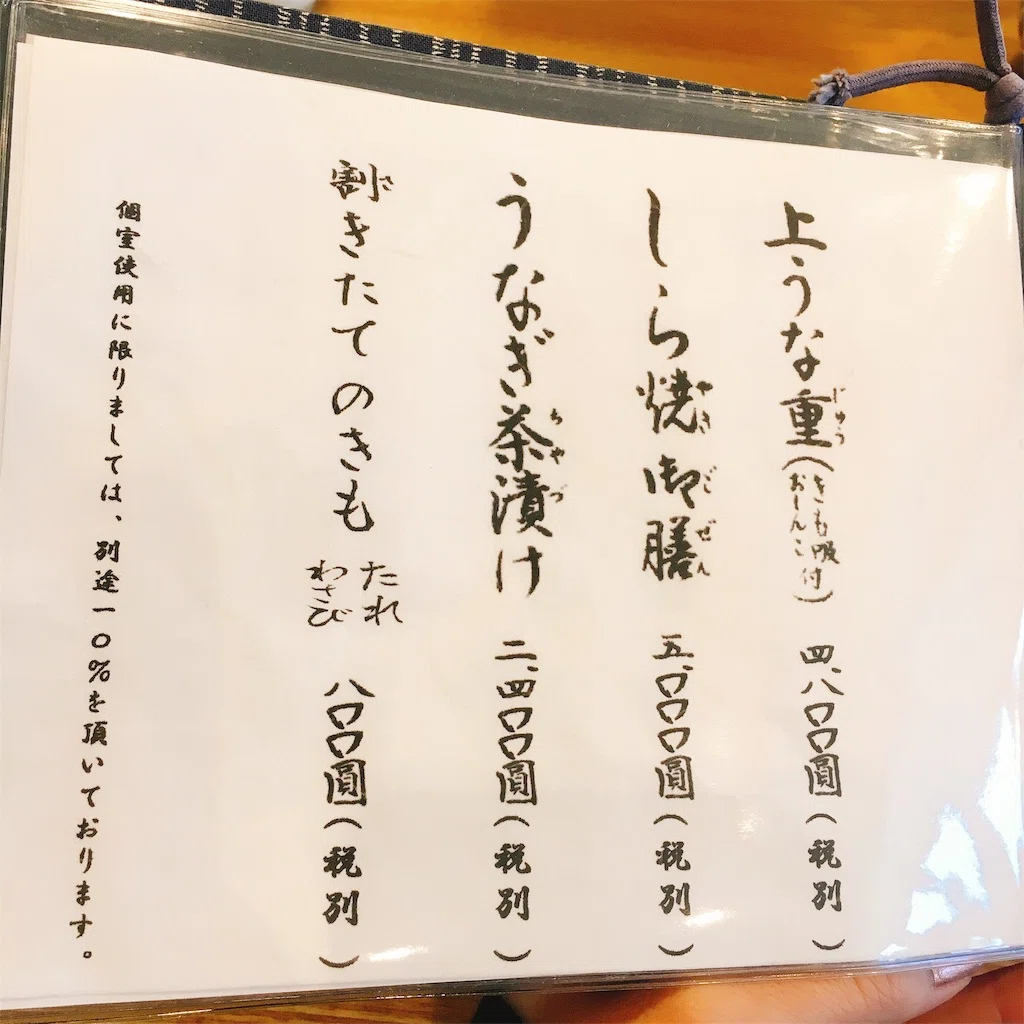 上うな重(きも吸付おしんこ) 四、八〇〇圓(税別)
じゅう
しら焼御膳 五、〇〇〇圓(税別)
やき ごぜん
うなぎ茶漬け 二、四〇〇圓(税別)
ちゃづ
割きたてのきも たれ わさび 八〇〇圓(税別)
さ
個室使用に限りましては、別途一〇%を頂いております。